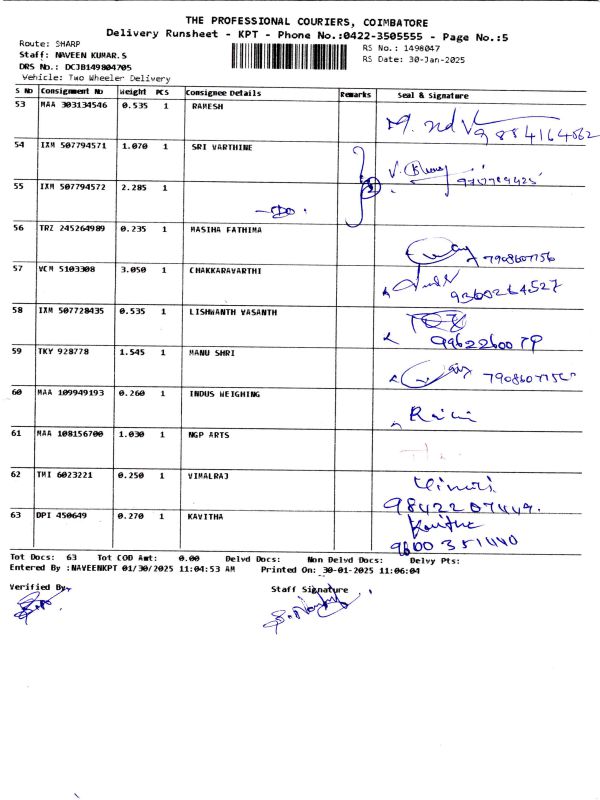 THE PROFESSIONAL COURIERS, COIMBATORE
Delivery Runsheet - KPT - Phone No.:0422-3505555 - Page No.:5
Route: SHARP
RS No.: 1498047
Staff: NAVEEN KUMAR.S
RS Date: 30-Jan-2025
DRS No.: DCJB149804705
Vehicle: Two Wheeler Delivery
S No Consignment No Weight PCS Consignee Details Remarks Seal & Signature
53 MAA 303134546 0.535 1 RAMESH
54 IXM 507794571 1.070 1 SRI VARTHINE
55 IXM 507794572 2.285 1 -Do. 2
56 TRZ 245264989 0.235 1 MASIHA FATHIMA
7908607156
57 VCM 5103308 3.050 1 CHAKKARAVARTHI
9360264527
58 IXM 507728435 0.535 1 LISHWANTH VASANTH
9962260079
59 TKY 928778 1.545 1 MANU SHRI
60 MAA 109949193 0.260 1 INDUS WEIGHING
61 MAA 108156700 1.030 1 NGP ARTS
62 TMI 6023221 0.250 1 VIMALRAJ
9842207449.
63 DPI 450649 0.270 1 KAVITHA Kavitha
9600351440
Tot Docs: 63 Tot COD Amt: 0.00 Delvd Docs: Non Delvd Docs: Delvy Pts:
Entered By :NAVEENKPT 01/30/2025 11:04:53 AM Printed On: 30-01-2025 11:06:04
Verified By,
Staff Signature